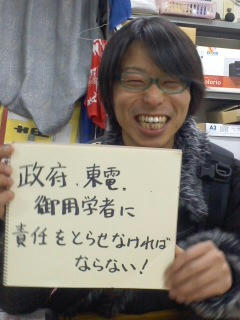 政府、東電、
御用学者に
責任をとらせなければ
ならない!
A3